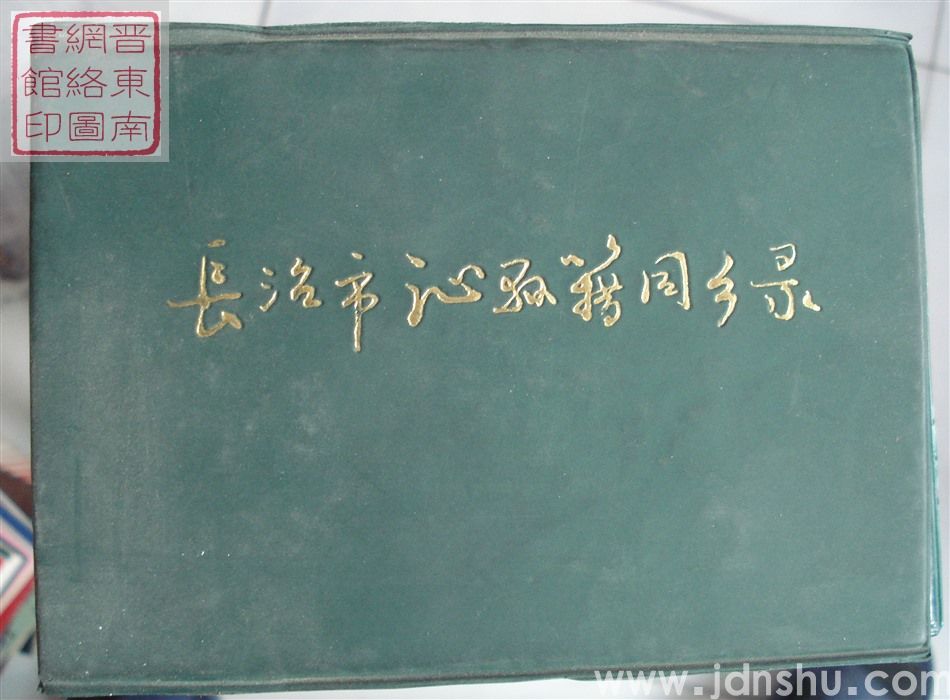 晋東南
網絡圖
書館印
長治市沁縣籍同乡录
www.jdnshu.com